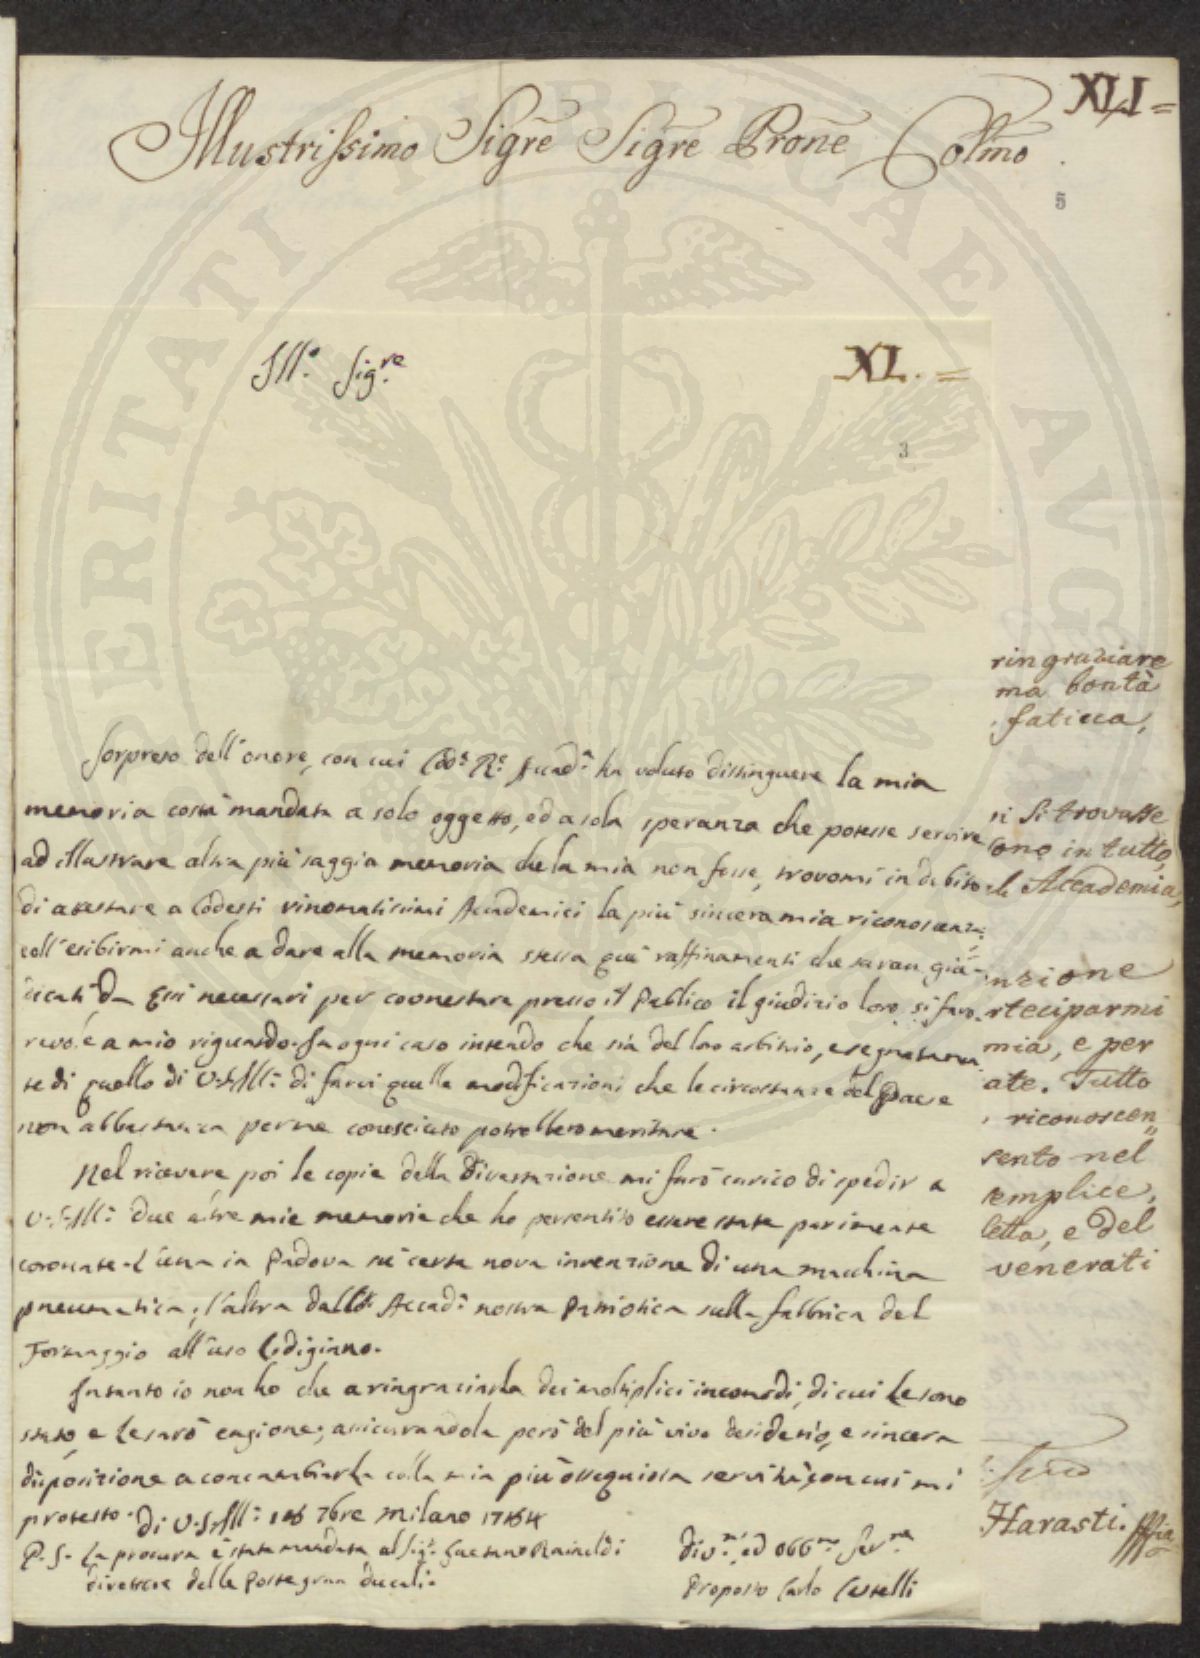 XLI =
Illustrissimo Sigre Sigre Prone Colmo
5
Ill.o Sig.re
XL. =
3
Sorpreso dell'onore, con cui Cod.a R.e Accad.a ha voluto distinguere la mia
memoria costà mandata a solo oggetto, ed a sola speranza che potesse servire
ad illustrare altra più saggia memoria che la mia non fosse, trovomi in debito
di attestare a Codesti rinomatissimi Accademici la più sincera mia riconoscenza,
coll'esibirmi anche a dare alla memoria stessa que' raffinamenti che saran giu-
dicati da Essi necessari per coonestare presso il Publico il giudizio loro sì favo-
revole a mio riguardo. In ogni caso intendo che sia del loro arbitrio, e segnatamen
te di quello di V.S.Ill: di farvi quelle modificazioni che le circostanze del Paese
non abbastanza per me conosciuto potrebbero meritare.
Nel ricevere poi le copie della Dissertazione mi farò carico di spedir a
V.S.Ill: due altre mie memorie che ho persentito essere state parimente
coronate. L'una in Padova su certa nova invenzione di una macchina
pneumatica; l'altra dalla Accad: nostra Patriotica sulla fabbrica del
Formaggio all'uso Lodigiano.
Intanto io non ho che a ringraziarla dei moltiplici incomodi, di cui Le sono
stato, e Le sarò cagione; assicurandola però del più vivo desiderio, e sincera
disposizione a concambiarla colla mia più ossequiosa servitù, con cui mi
protesto. Di V.S.Ill: 7bre Milano 1784
P.S. La procura è stata mandata al Sig.r Gaetano Rainoldi
direttore delle Poste gran Ducali.
Div.mo ed obb.mo Ser.re
Proposto Carlo Castelli
ringraziare
ma bontà
fatica,
si trovasse
sono in tutto,
Accademia,
nzione
rteciparmi
mia, e per
ate. Tutto
riconoscen,,
sento nel
semplice,
letta, e del
venerati
Harasti.
PERITATI PUBLICAE AUG